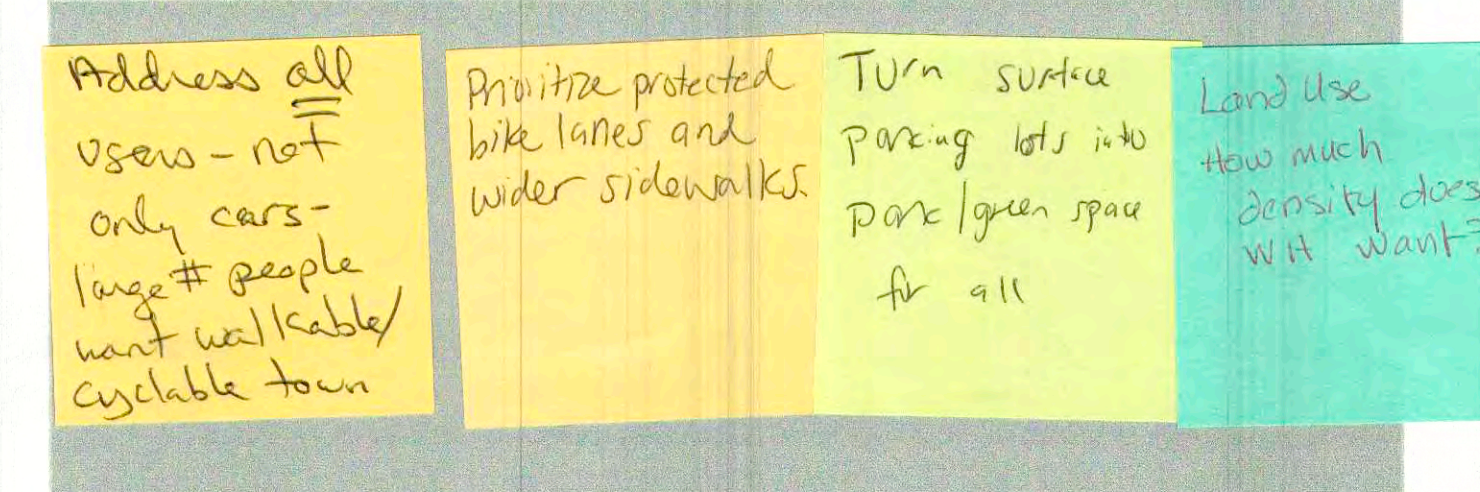 Address all
users - not
only cars -
large # people
want walkable/
cyclable town
Prioritize protected
bike lanes and
wider sidewalks.
Turn surface
parking lots into
park/green space
for all
Land Use
How much
density does
WH want?